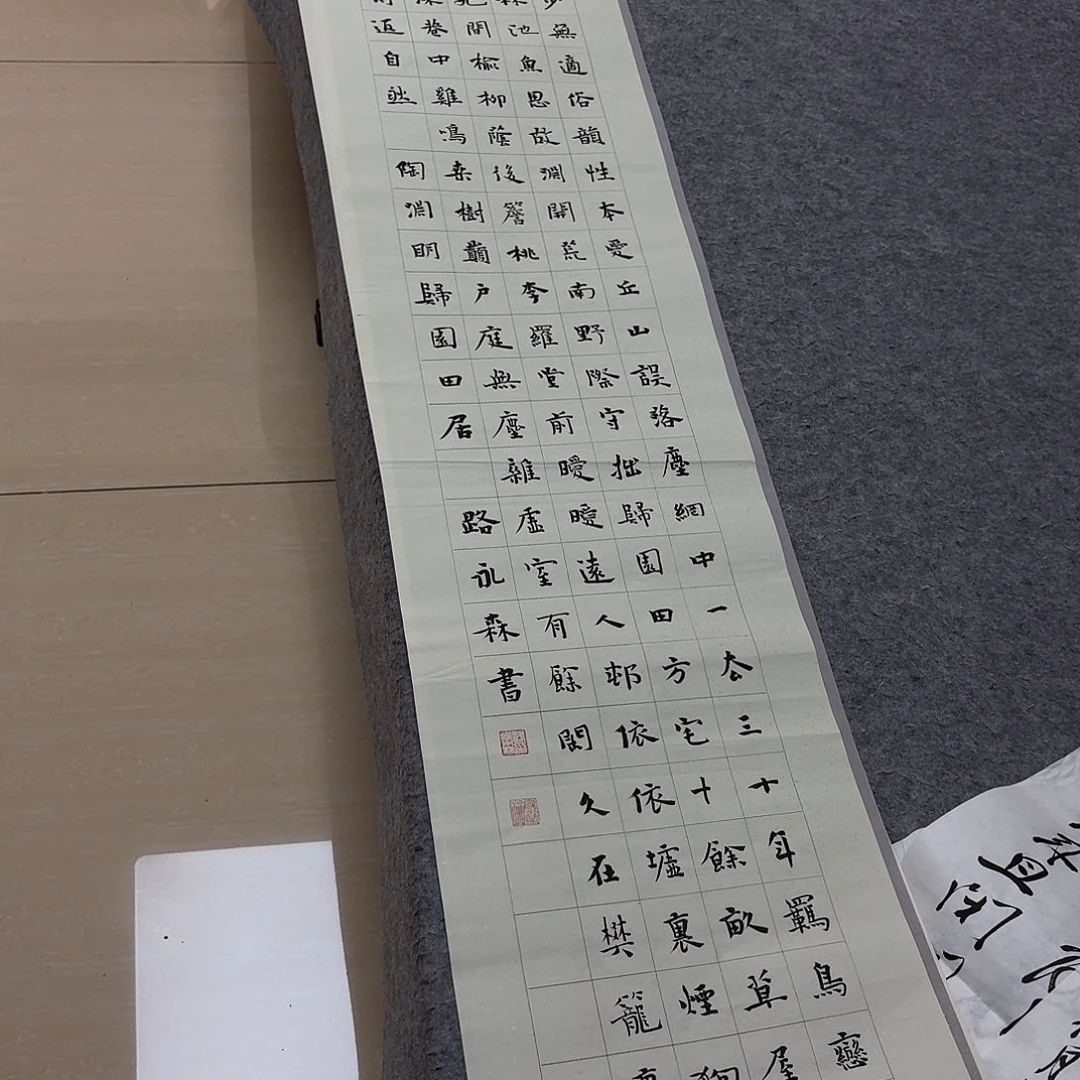 少無適俗韻性本愛丘山誤落塵網中一去三十年羈鳥戀
林池魚思故淵開荒南野際守拙歸園田方宅十餘畝草屋
九間榆柳蔭後簷桃李羅堂前曖曖遠人邨依依墟裏煙狗
深巷中雞鳴桑樹巔戶庭無塵雜虛室有餘閒久在樊籠
返自然 陶淵明歸園田居 路永森書